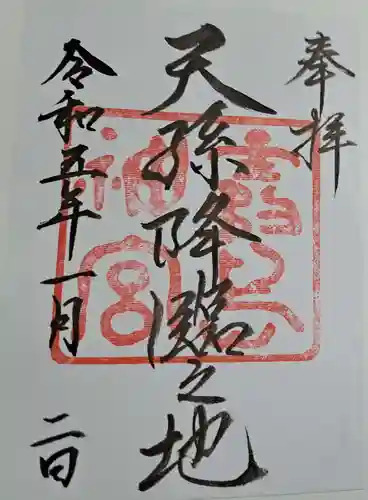 奉拝
天孫降臨之地
令和五年一月二日
神宮